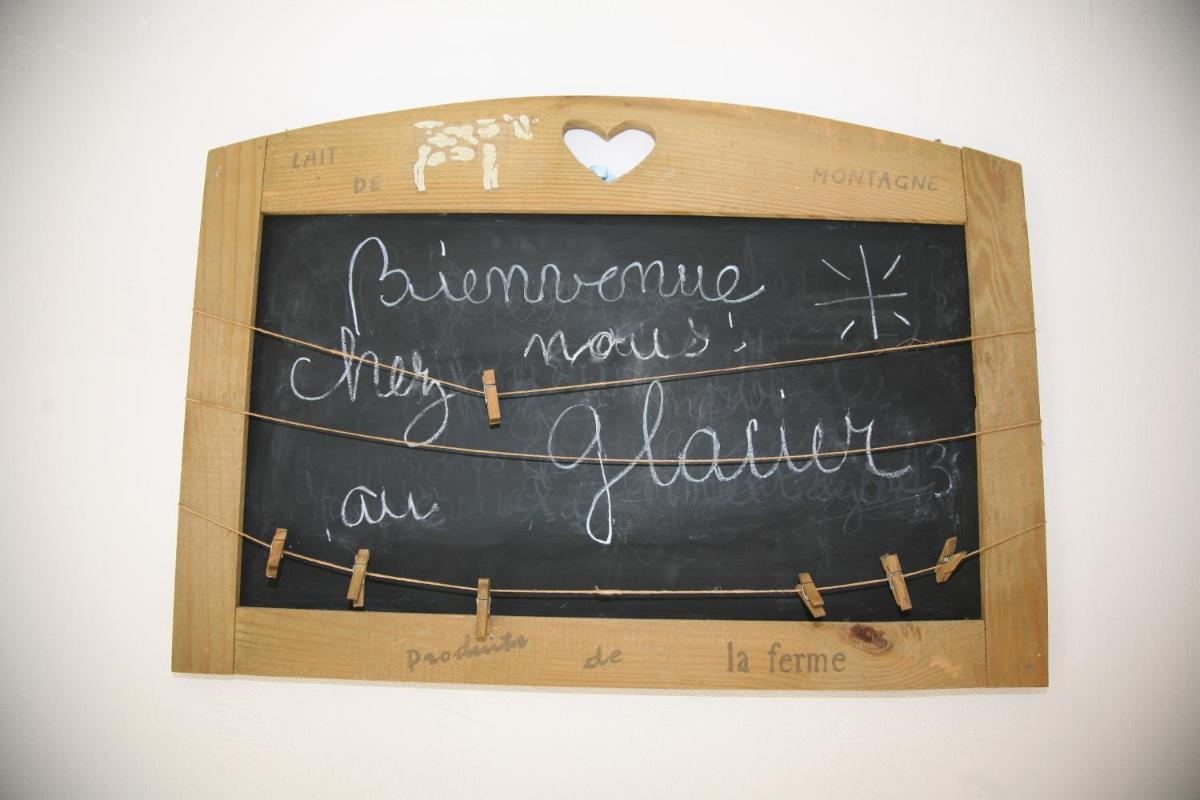 LAIT
DE
MONTAGNE
Bienvenue
chez nous!
au glacier
Produits de la ferme